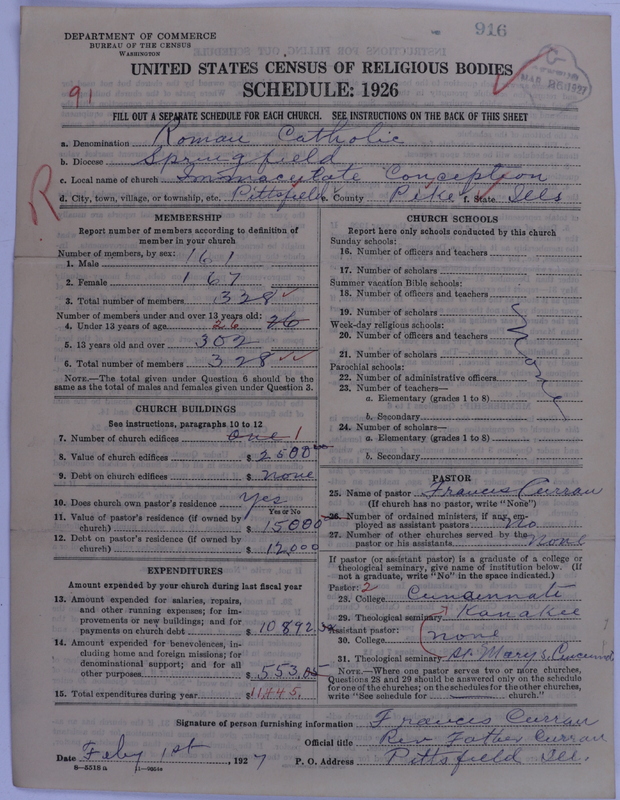 916
DEPARTMENT OF COMMERCE
BUREAU OF THE CENSUS
WASHINGTON
UNITED STATES CENSUS OF RELIGIOUS BODIES
SCHEDULE: 1926
91
FILL OUT A SEPARATE SCHEDULE FOR EACH CHURCH. SEE INSTRUCTIONS ON THE BACK OF THIS SHEET
a. Denomination Roman Catholic
b. Diocese Springfield
c. Local name of church Immaculate Conception
d. City, town, village, or township, etc. Pittsfield e. County Pike f. State Ills
R
MEMBERSHIP
Report number of members according to definition of
member in your church
Number of members, by sex:
1. Male 161
2. Female 167
3. Total number of members 328
Number of members under and over 13 years old:
4. Under 13 years of age 26 26
5. 13 years old and over 302
6. Total number of members 328
NOTE.—The total given under Question 6 should be the
same as the total of males and females given under Question 3.
CHURCH BUILDINGS
See instructions, paragraphs 10 to 12
7. Number of church edifices one 1
8. Value of church edifices $ 25000
9. Debt on church edifices $ none
10. Does church own pastor's residence Yes
Yes or No
11. Value of pastor's residence (if owned by
church) $ 15000
12. Debt on pastor's residence (if owned by
church) $ 12,000
EXPENDITURES
Amount expended by your church during last fiscal year
13. Amount expended for salaries, repairs,
and other running expenses; for im-
provements or new buildings; and for
payments on church debt $ 10892.
14. Amount expended for benevolences, in-
cluding home and foreign missions; for
denominational support; and for all
other purposes $ 553.
15. Total expenditures during year $ 11445.
CHURCH SCHOOLS
Report here only schools conducted by this church
Sunday schools:
16. Number of officers and teachers
17. Number of scholars
Summer vacation Bible schools:
18. Number of officers and teachers
19. Number of scholars
Week-day religious schools:
20. Number of officers and teachers
21. Number of scholars
Parochial schools:
22. Number of administrative officers
23. Number of teachers—
a. Elementary (grades 1 to 8)
b. Secondary
24. Number of scholars—
a. Elementary (grades 1 to 8)
b. Secondary
none
PASTOR
25. Name of pastor Francis Curran
(If church has no pastor, write "None")
26. Number of ordained ministers, if any, em-
ployed as assistant pastors No
27. Number of other churches served by the
pastor or his assistants None
If pastor (or assistant pastor) is a graduate of a college or
theological seminary, give name of institution below. (If
not a graduate, write "No" in the space indicated.)
Pastor: 2
28. College Cincinnati
29. Theological seminary Kanakee
Assistant pastor:
30. College none
31. Theological seminary St Marys Cincinnati
NOTE.—Where one pastor serves two or more churches,
Questions 28 and 29 should be answered only on the schedule
for one of the churches; on the schedules for the other churches,
write "See schedule for church."
Signature of person furnishing information Francis Curran
Official title Rev Father Curran
Date Feby 1st, 1927 P. O. Address Pittsfield Ill.
8—5518a